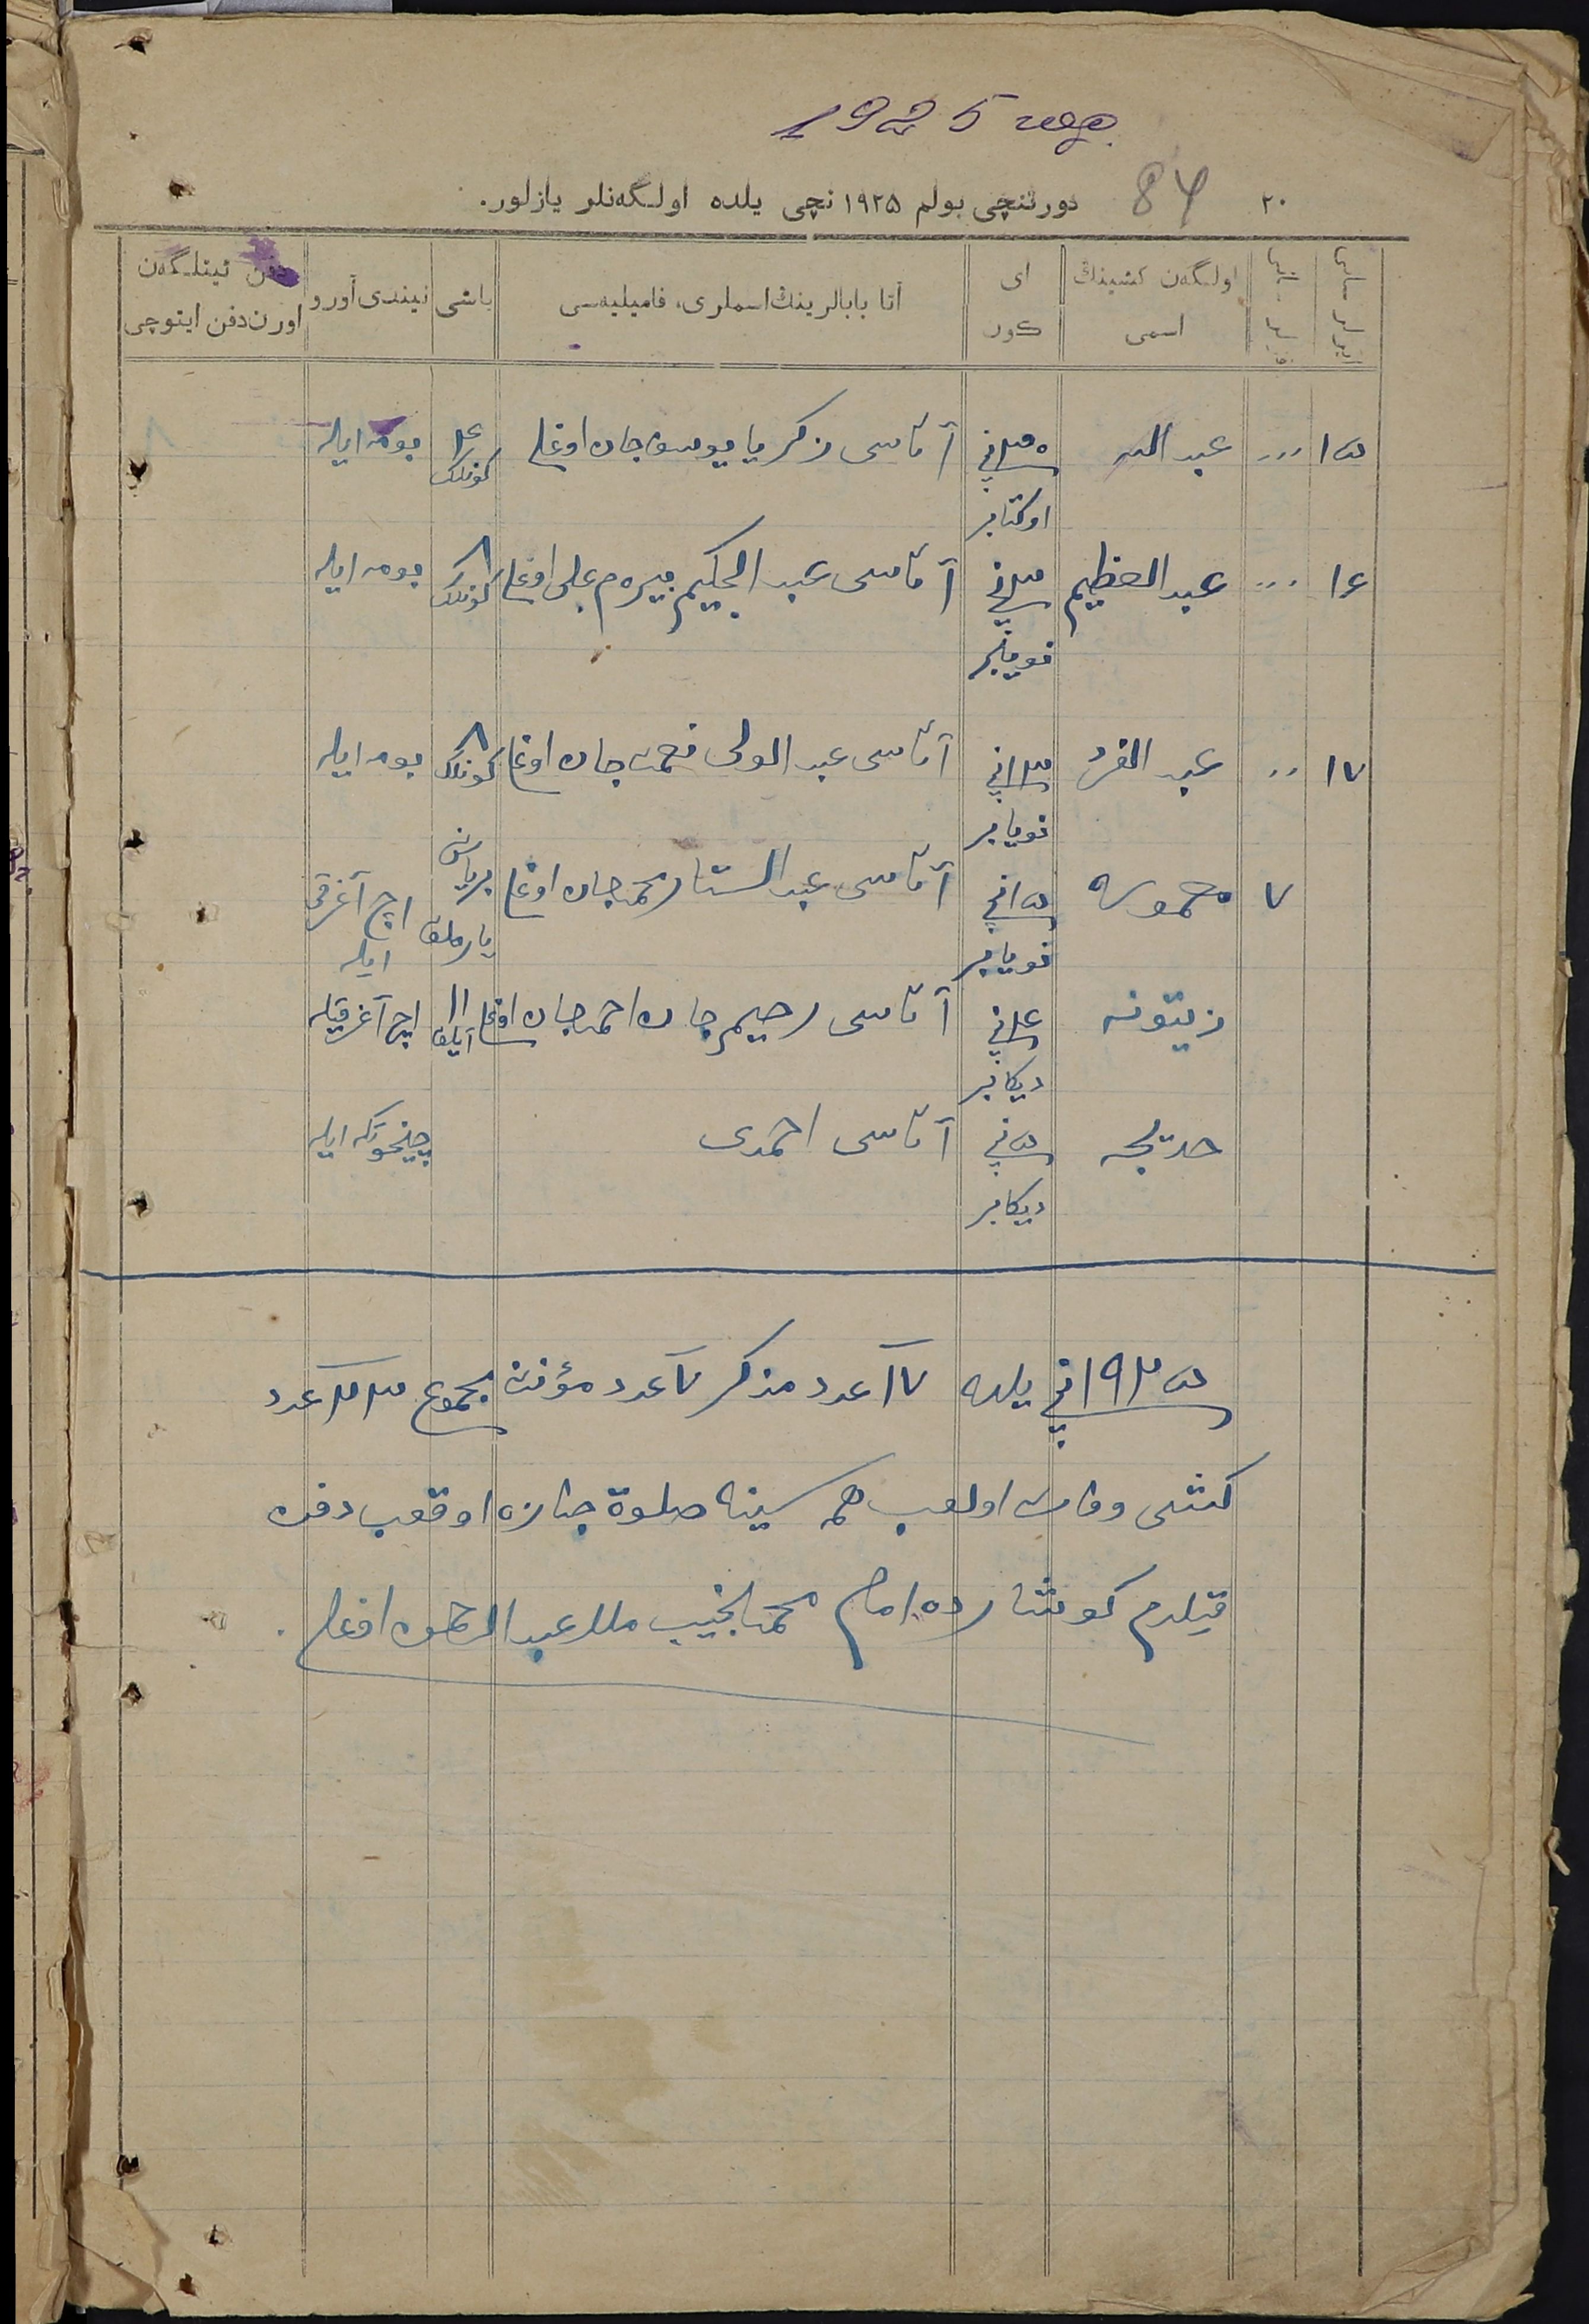 1925 год
٢٠ 84 دورتنچی بولم ١٩٢٥ نچی یلده اولـگەنلر یازلور.
اولـگەن کشینڭ اسمی
ای کون
آتا بابالرینڭ اسملری، فامیلیەسی
یاشی
نیندی آورو
دفن ئیتلـگەن اورن دفن ایتوچی
١٥ ... عبد الله
اوکتابر
آتاسی زکریا یوسف جان اوغلی
کونلک
بومه ایله
١٦ ... عبد العظیم
نویابر
آتاسی عبد الحکیم بیرم علی اوغلی
٨ کونلک
بومه ایله
١٧ .. عبد الفرد
نویابر
آتاسی عبد الولی نعمت جان اوغلی
٨ کونلک
بومه ایله
٧
نویابر
آتاسی عبد الستار محمد جان اوغلی
بر یاش یارملق
اچ آغرقی ایله
زیتونه
دیکابر
آتاسی رحیم جان احمد جان اوغلی
١١ آیلق
اچ آغرقیله
خدیجه
دیکابر
آتاسی احمدی
چیخوتکه ایله
١٩٢٥ نچی یلده ١٧ عدد مذکر ٧ عدد مؤنث مجموع ٢٤ عدد
کشی وفات اولوب همه سینه صلوة جنازه اوقوب دفن
قیلدم کوشتارده امام محمد نجیب ملا عبد الرحمن اوغلی.